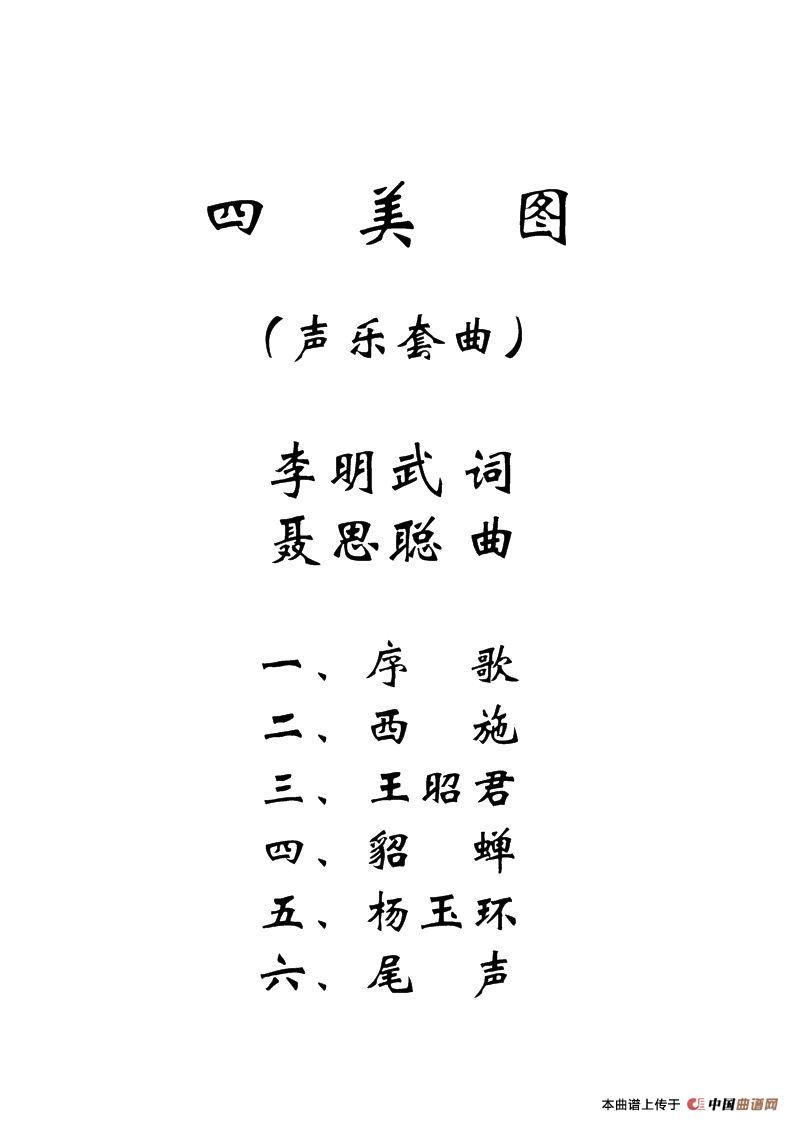 四 美 图
（声乐套曲）
李明武 词
聂思聪 曲
一、序 歌
二、西 施
三、王昭君
四、貂 蝉
五、杨玉环
六、尾 声
本曲谱上传于 中国曲谱网